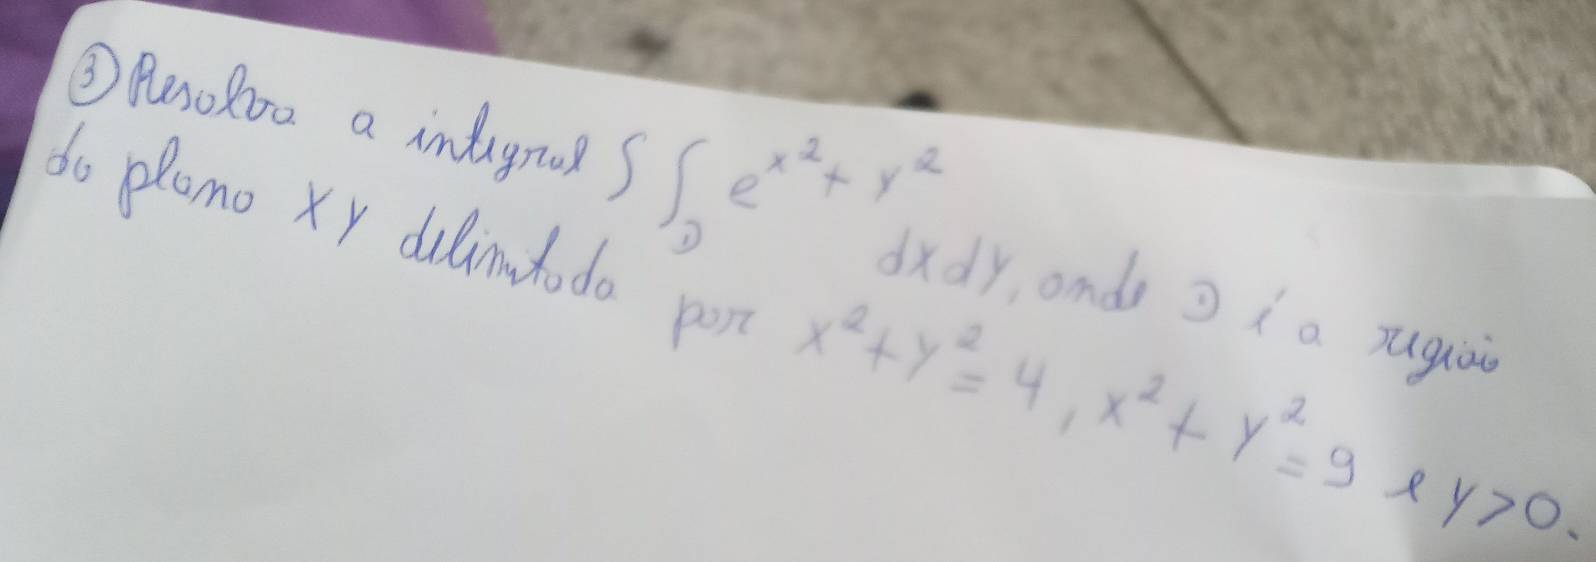 ③ Resolva a integral ∫∫_D e^{x²+y²} dxdy, onde D é a região
do plano XY delimitada por x²+y²=4, x²+y²=9 e y>0.